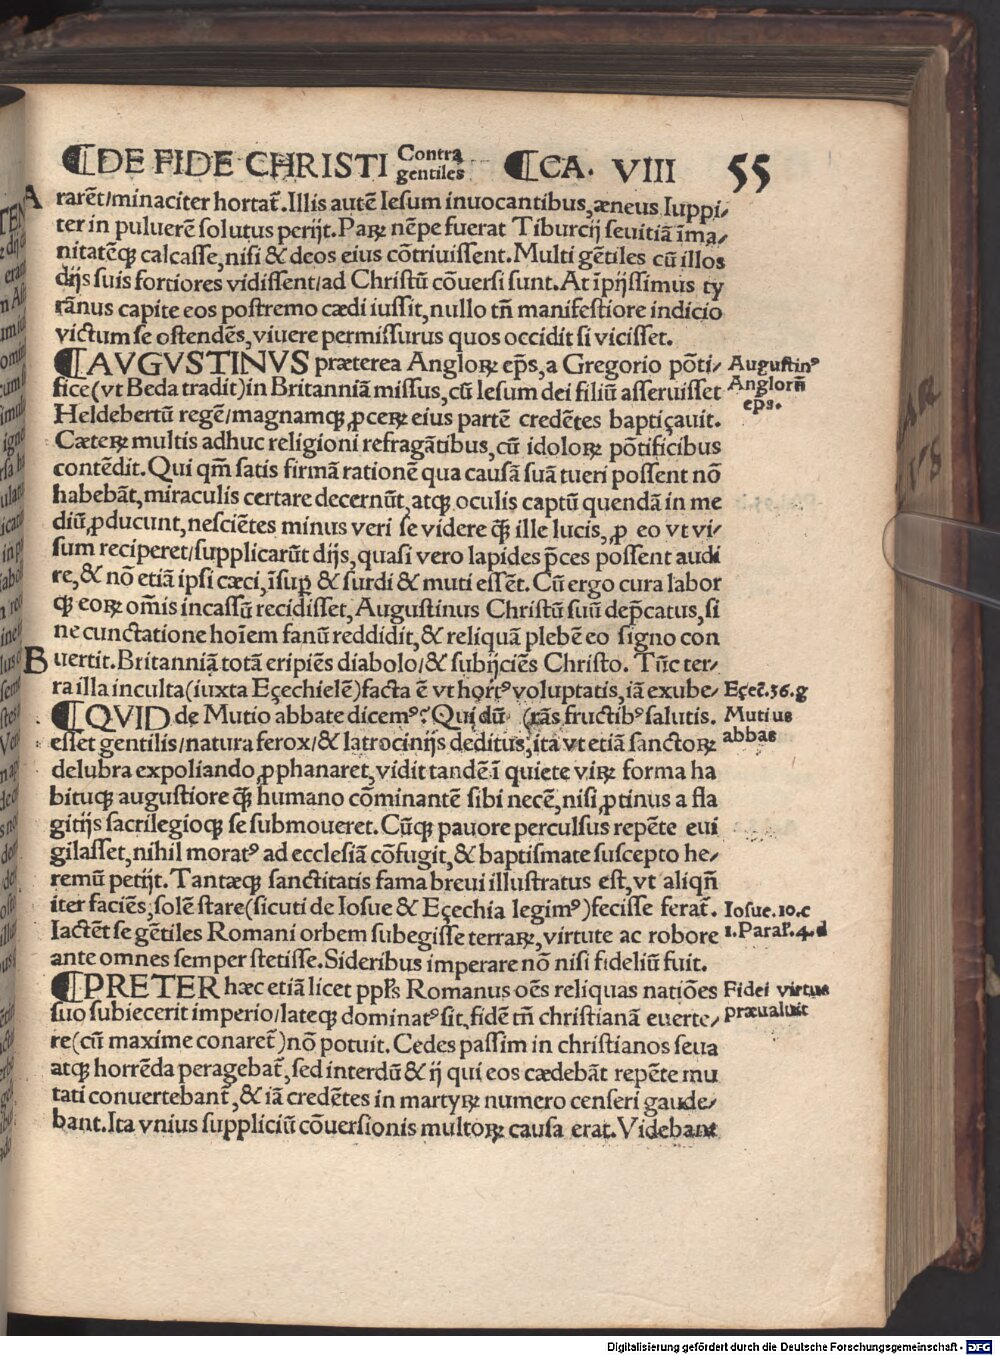 ¶DE FIDE CHRISTI Contra gentiles ¶CA. VIII 55
A
rarẽt/minaciter hortat᷑. Illis autẽ Iesum inuocantibus, æneus Iuppi/
ter in puluerẽ solutus perijt. Parꝝ nẽpe fuerat Tiburcij seuitiã ĩma/
nitatẽqꝫ calcasse, nisi & deos eius cõtriuissent. Multi gẽtiles cũ illos
dijs suis fortiores vidissent/ad Christũ cõuersi sunt. At ĩpijssimus ty
rãnus capite eos postremo cædi iussit, nullo tñ manifestiore indicio
victum se ostendẽs, viuere permissurus quos occidit si vicisset.
¶AVGVSTINVS præterea Angloꝝ ep̃s, a Gregorio põti/
fice (vt Beda tradit) in Britanniã missus, cũ Iesum dei filiũ asseruisset
Heldebertũ regẽ/magnamqꝫ ꝓceꝝ eius partẽ credẽtes baptiçauit.
Cæteꝝ multis adhuc religioni refragãtibus, cũ idoloꝝ põtificibus
contẽdit. Qui qm̃ satis firmã rationẽ qua causã suã tueri possent nõ
habebãt, miraculis certare decernũt, atqꝫ oculis captũ quendã in me
diũ ꝓducunt, nesciẽtes minus veri se videre q̃ꝫ ille lucis, ꝓ eo vt vi/
sum reciperet/supplicarũt dijs, quasi vero lapides p̃ces possent audi
re, & nõ etiã ipsi cæci, ĩsuꝑ & surdi & muti essẽt. Cũ ergo cura labor
qꝫ eoꝝ om̃is incassũ recidisset, Augustinus Christũ suũ dep̃catus, si
ne cunctatione hoĩem sanũ reddidit, & reliquã plebẽ eo signo con
B
uertit. Britanniã totã eripiẽs diabolo/& subijciẽs Christo. Tũc ter/
ra illa inculta (iuxta Eçechielẽ) facta ẽ vt hortꝰ voluptatis, iã exube/
¶QVID de Mutio abbate dicemꝰ? Qui dũ (rãs fructibꝰ salutis.
esset gentilis/natura ferox/& latrocinijs deditus, ita vt etiã sanctoꝝ
delubra expoliando ꝓphanaret, vidit tandẽ ĩ quiete virꝝ forma ha
bituqꝫ augustiore q̃ꝫ humano cõminantẽ sibi necẽ, nisi ꝓtinus a fla
gitijs sacrilegioqꝫ se submoueret. Cũqꝫ pauore perculsus repẽte eui
gilasset, nihil moratꝰ ad ecclesiã cõfugit, & baptismate suscepto he/
remũ petijt. Tantæqꝫ sanctitatis fama breui illustratus est, vt aliqñ
iter faciẽs, solẽ stare (sicuti de Iosue & Eçechia legimꝰ) fecisse ferat᷑.
Iactẽt se gẽtiles Romani orbem subegisse terraꝝ, virtute ac robore
ante omnes semper stetisse. Sideribus imperare nõ nisi fideliũ fuit.
¶PRETER hæc etiã licet pp̃ls Romanus oẽs reliquas natiões
suo subiecerit imperio/lateqꝫ dominatꝰ sit, fidẽ tñ christianã euerte/
re (cũ maxime conaret᷑) nõ potuit. Cedes passim in christianos seua
atqꝫ horrẽda peragebat᷑, sed interdũ & ij qui eos cædebãt repẽte mu
tati conuertebant᷑, & iã credẽtes in martyꝝ numero censeri gaude/
bant. Ita vnius suppliciũ cõuersionis multoꝝ causa erat. Videbant
Augustinꝰ
Angloꝝ
ep̃s.
Eçec̃. 36. g
Mutius
abbas
Iosue. 10. c
1. Paral̃. 4. d
Fidei virtus
præualuit
Digitalisierung gefördert durch die Deutsche Forschungsgemeinschaft - DFG